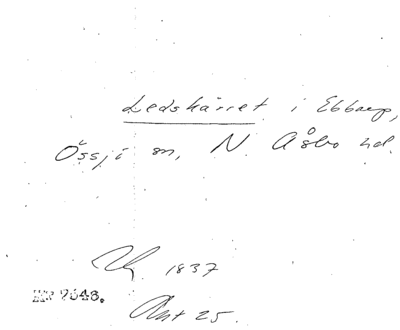 Ledskärret i Ebbarp,
Össjö sn, N. Åsbo hd.
1837
HNP 7648.
Akt 25.